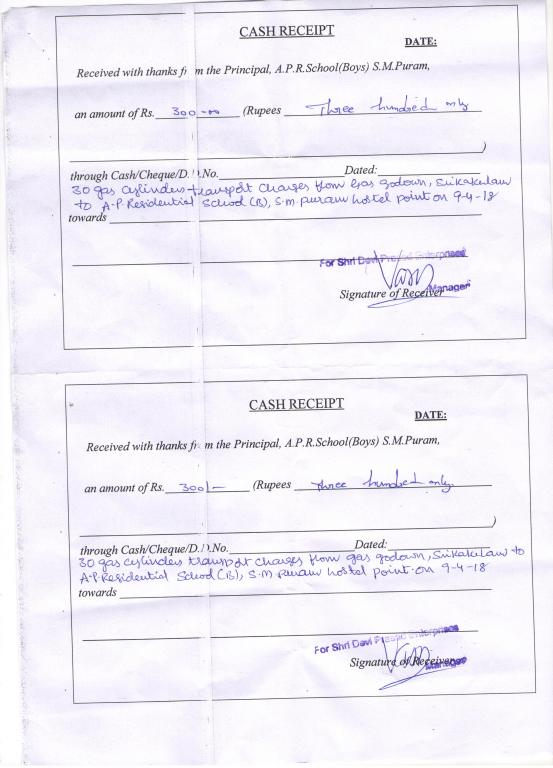 CASH RECEIPT
DATE:
Received with thanks from the Principal, A.P.R.School(Boys) S.M.Puram,
an amount of Rs. 300-00 (Rupees Three hundred only
)
through Cash/Cheque/D.D.No. Dated:
30 gas cylinders transport charges from Gas godown, Srikakulam
to A.P. Residential School (B), S.M. Puram hostel point on 9-4-18
towards
For Shri Devi Enterprises
Manager
Signature of Receiver
CASH RECEIPT
DATE:
Received with thanks from the Principal, A.P.R.School(Boys) S.M.Puram,
an amount of Rs. 300/- (Rupees Three hundred only
)
through Cash/Cheque/D.D.No. Dated:
30 gas cylinders transport charges from gas godown, Srikakulam to
A.P. Residential School (B), S.M Puram hostel point on 9-4-18
towards
For Shri Devi Enterprises
Signature of Receiver
Manager